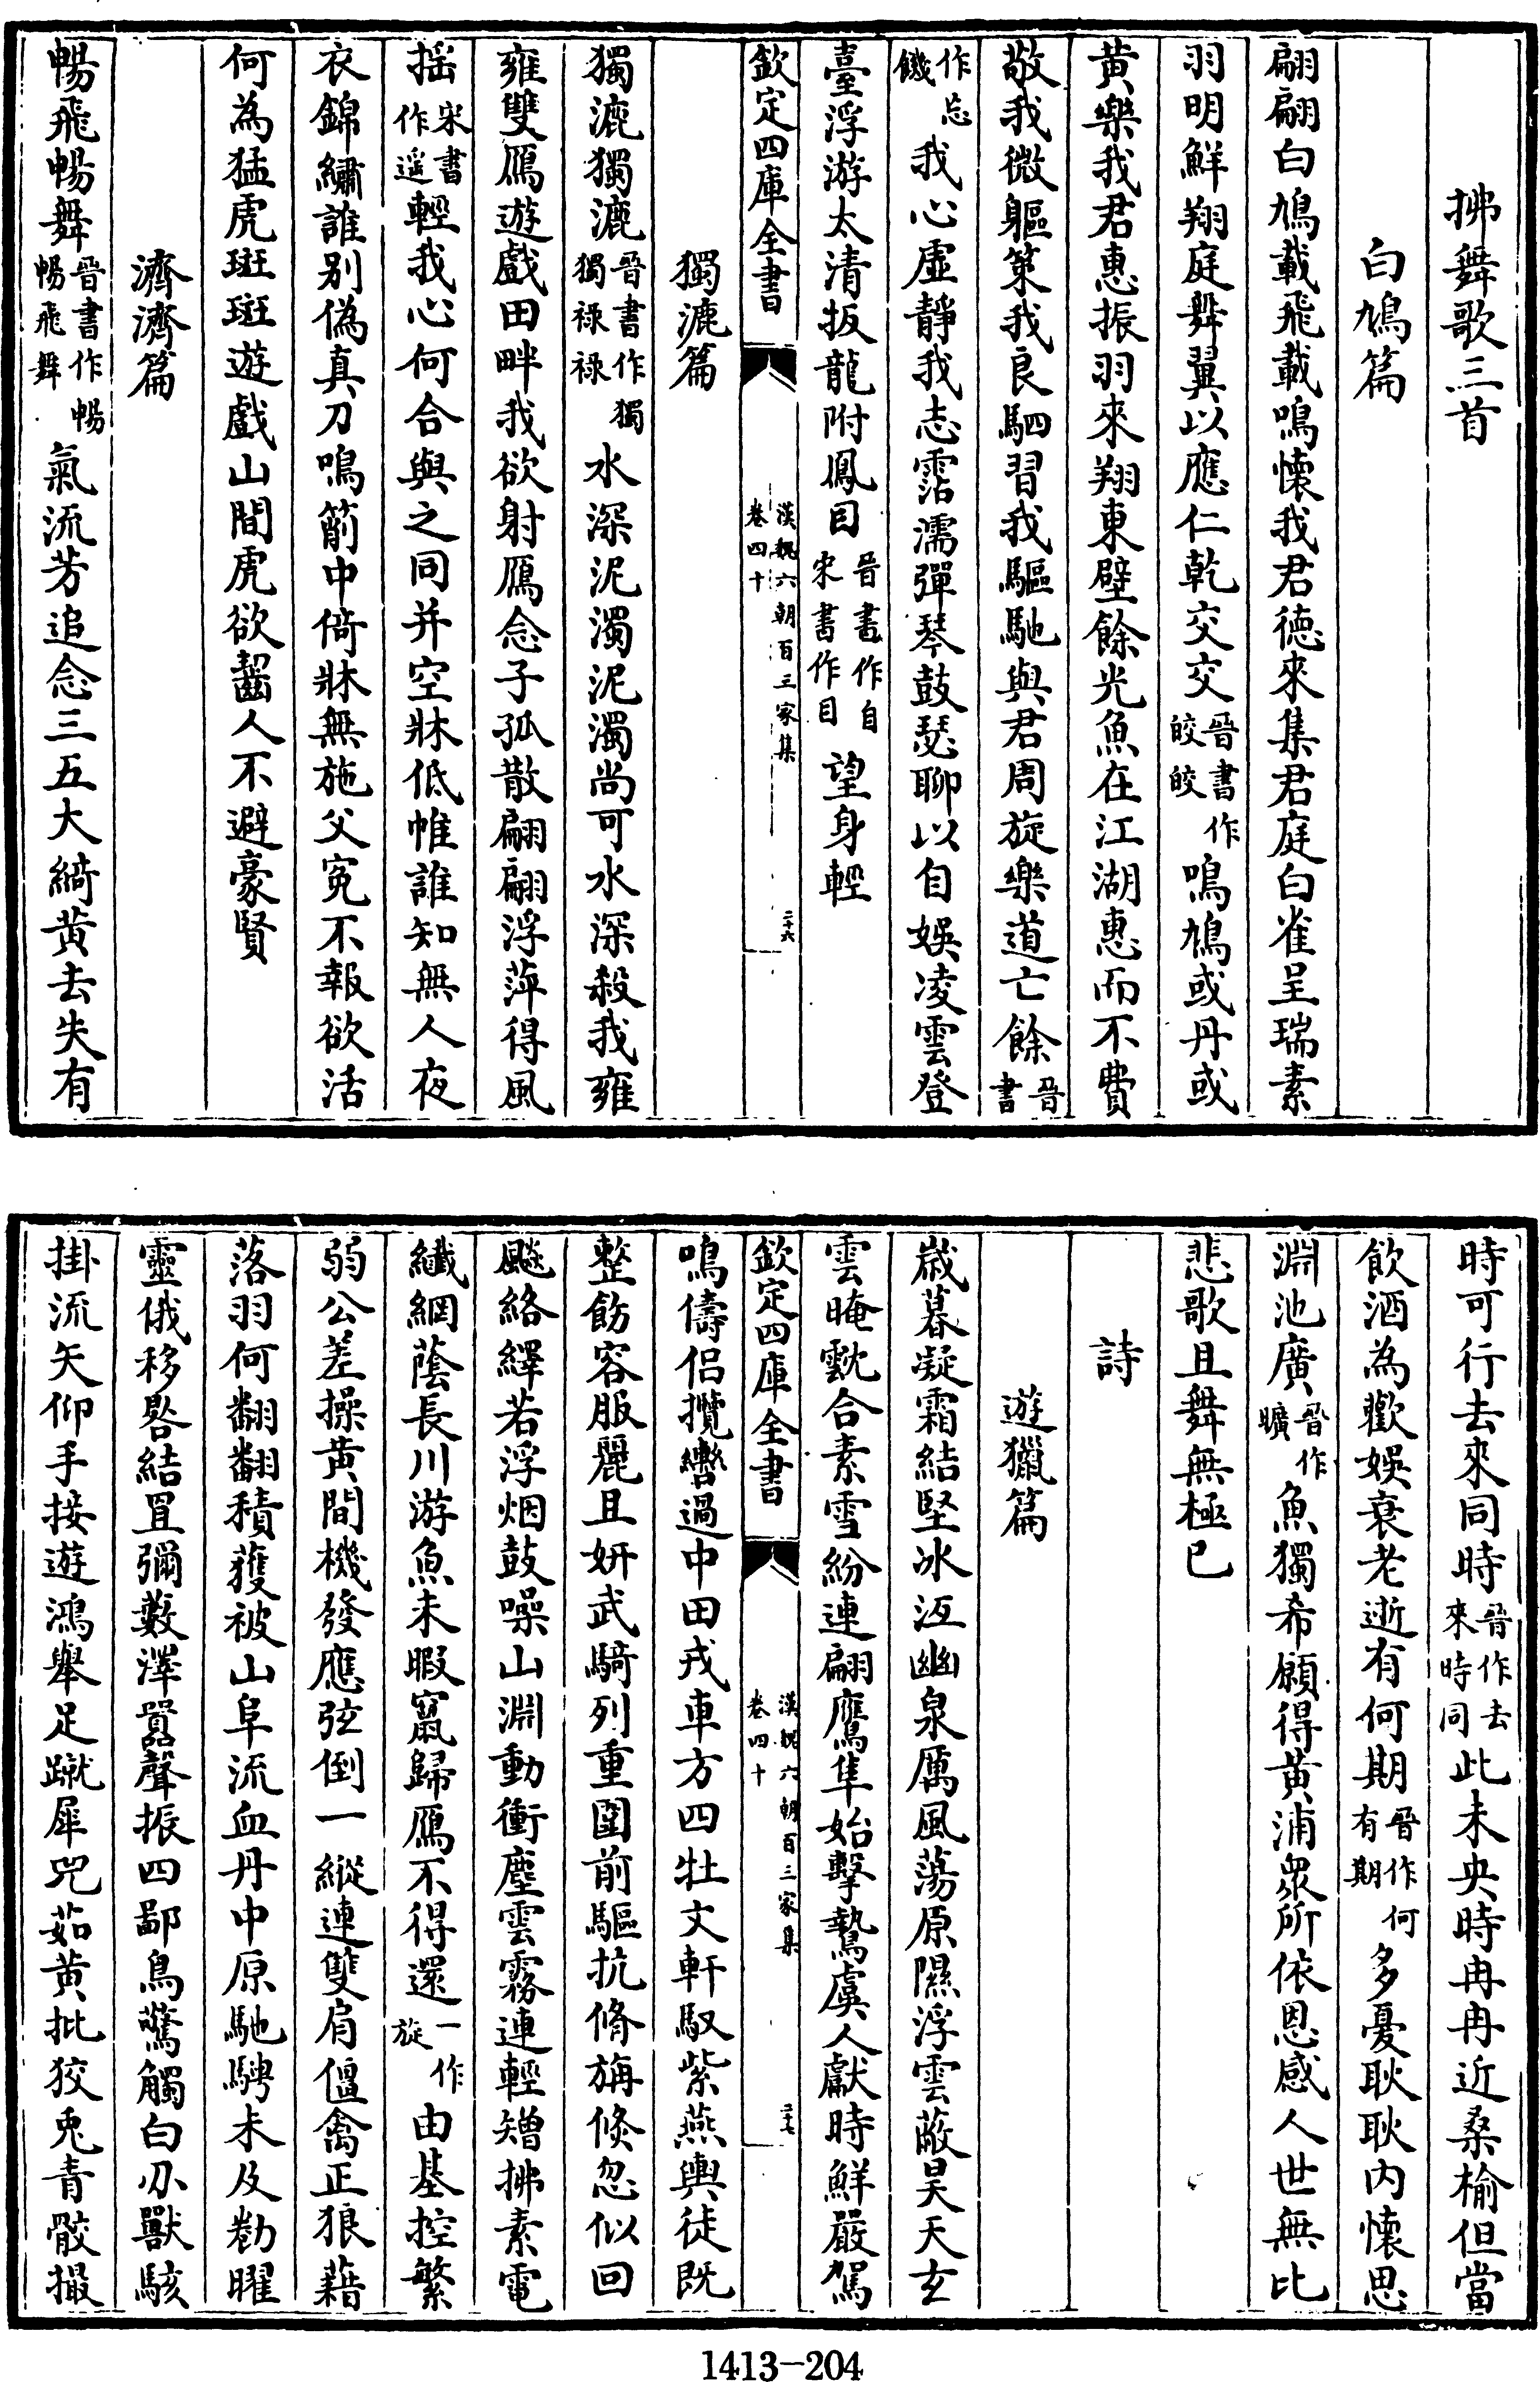 拂舞歌三首
白鳩篇
翩翩白鳩載飛載鳴懷我君德來集君庭白雀呈瑞素
羽明鮮翔庭舞翼以應仁乾交交晉書作皎皎鳴鳩或丹或
黃樂我君惠振羽來翔東壁餘光魚在江湖惠而不費
敬我微軀策我良駟習我驅馳與君周旋樂道亡餘晉書
作忘饑我心虛靜我志霑濡彈琴鼓瑟聊以自娛凌雲登
臺浮游太清扳龍附鳳目晉書作自宋書作目望身輕
欽定四庫全書
漢魏六朝百三家集
卷四十
二十六
獨漉篇
獨漉獨漉晉書作獨獨祿祿水深泥濁泥濁尚可水深殺我雍
雍雙鴈遊戲田畔我欲射鴈念子孤散翩翩浮萍得風
揺宋書作遥輕我心何合與之同并空牀低帷誰知無人夜
衣錦繡誰别偽真刀鳴箾中倚牀無施父寃不報欲活
何為猛虎斑斑遊戲山間虎欲齧人不避豪賢
濟濟篇
暢飛暢舞晉書作暢暢飛舞氣流芳追念三五大綺黃去失有
時可行去來同時晉作去來時同此未央時冉冉近桑榆但當
飲酒為歡娛衰老逝有何期晉作何有期多憂耿耿内懷思
淵池廣晉作曠魚獨希願得黃浦衆所依恩感人世無比
悲歌且舞無極已
詩
遊獵篇
嵗暮凝霜結堅冰沍幽泉厲風蕩原隰浮雲蔽昊天玄
雲晻䨴合素雪紛連翩鷹隼始擊鷙虞人獻時鮮嚴駕
欽定四庫全書
漢魏六朝百三家集
卷四十
二十七
鳴儔侶攬轡過中田戎車方四牡文軒馭紫燕輿徒既
整飭容服麗且妍武騎列重圍前驅抗脩旃倐忽似回
飈絡繹若浮烟鼓噪山淵動衝塵雲霧連輕矰拂素電
纎網蔭長川游魚未暇竄歸鴈不得還一作旋由基控繁
弱公差操黃間機發應弦倒一縱連雙肩僵禽正狼藉
落羽何翩翻積獲被山阜流血丹中原馳騁未及勌曜
靈俄移晷結罝彌藪澤囂聲振四鄙鳥驚觸白刃獸駭
掛流矢仰手接遊鴻舉足蹴犀兕茹黃批狡兎青骹撮
1413-204